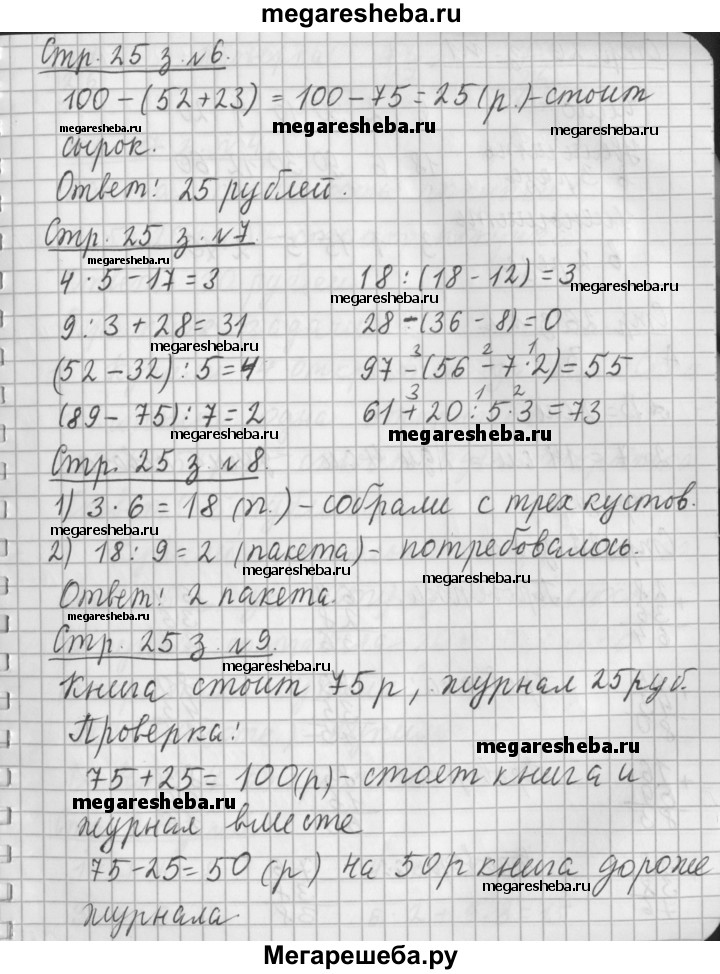 megaresheba.ru
Стр. 25 з. №6.
100 – (52 + 23) = 100 – 75 = 25 (р.) – стоит
megaresheba.ru megaresheba.ru megaresheba.ru
сырок.
Ответ: 25 рублей.
Стр. 25 з. №7
megaresheba.ru
4 · 5 – 17 = 3 18 : (18 – 12) = 3
megaresheba.ru megaresheba.ru
9 : 3 + 28 = 31 28 – (36 – 8) = 0
megaresheba.ru
3 2 1
(52 – 32) : 5 = 4 97 – (56 – 7 · 2) = 55
3 1 2
(89 – 75) : 7 = 2 61 + 20 : 5 · 3 = 73
megaresheba.ru megaresheba.ru
Стр. 25 з. №8.
megaresheba.ru
1) 3 · 6 = 18 (п.) – собрали с трех кустов.
megaresheba.ru
2) 18 : 9 = 2 (пакета) – потребовалось.
megaresheba.ru megaresheba.ru
Ответ: 2 пакета
megaresheba.ru
Стр. 25 з. №9.
megaresheba.ru
Книга стоит 75 р, журнал 25 руб.
Проверка:
megaresheba.ru
75 + 25 = 100 (р) – стоят книга и
megaresheba.ru
журнал вместе
75 – 25 = 50 (р) на 50 р книга дороже
megaresheba.ru
журнала
Мегарешеба.ру